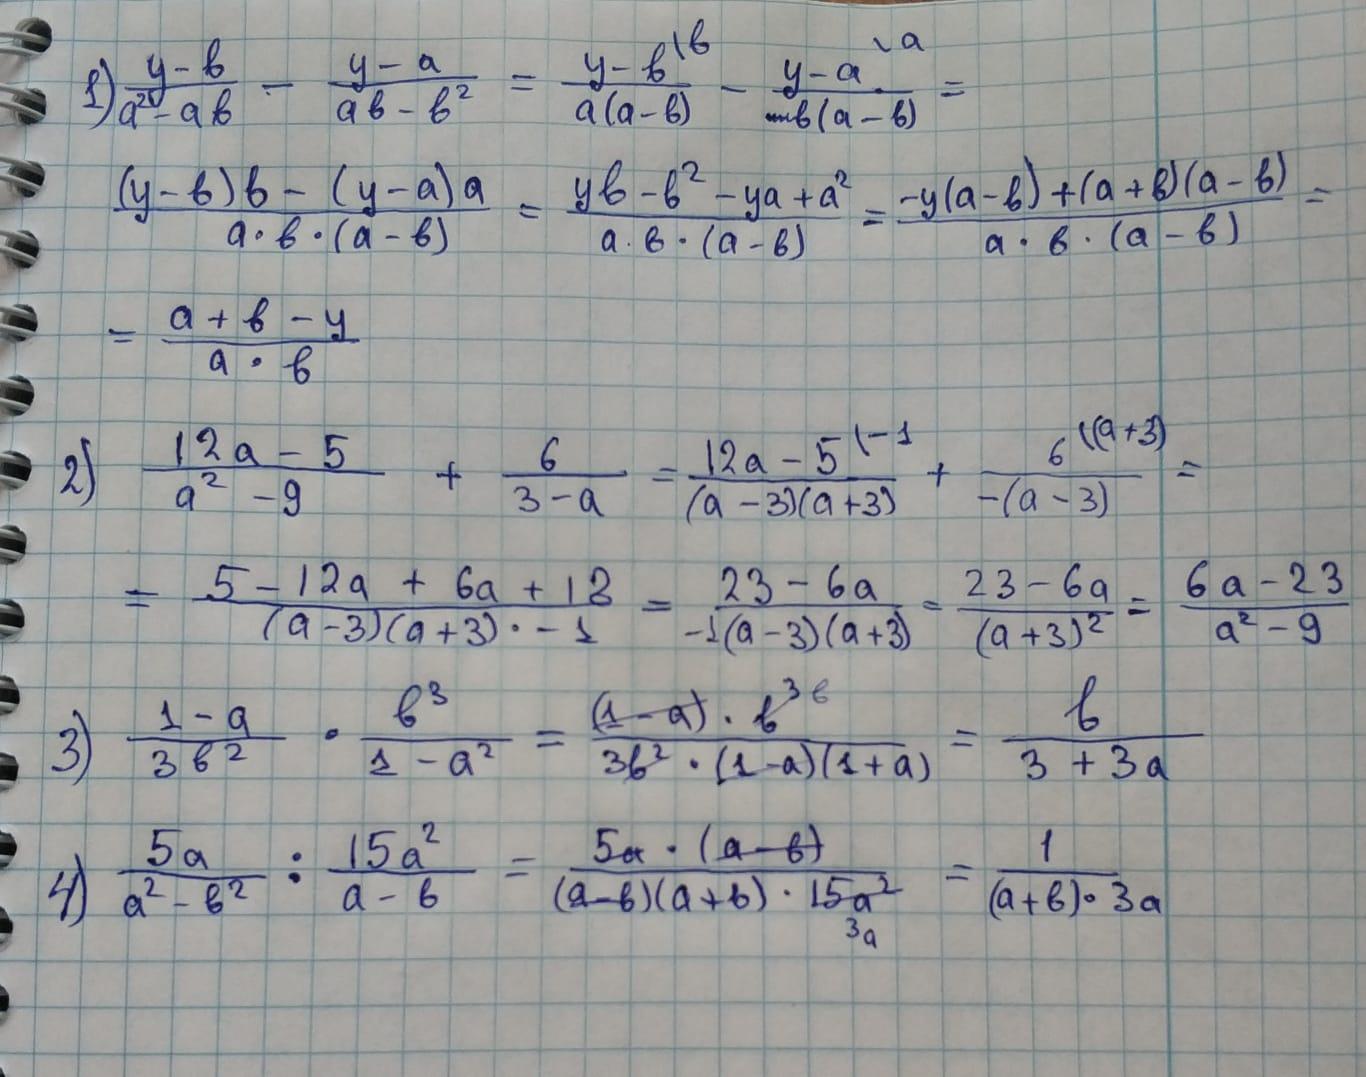 1) (y-b)/(a²-ab) - (y-a)/(ab-b²) = (y-b\b)/(a(a-b)) - (y-a\a)/(b(a-b)) =
((y-b)b-(y-a)a)/(a·b·(a-b)) = (yb-b²-ya+a²)/(a·b·(a-b)) = (-y(a-b)+(a+b)(a-b))/(a·b·(a-b)) =
= (a+b-y)/(a·b)
2) (12a-5)/(a²-9) + 6/(3-a) = (12a-5\-1)/((a-3)(a+3)) + (6\(a+3))/(-(a-3)) =
= (5-12a+6a+18)/((a-3)(a+3)·-1) = (23-6a)/(-1(a-3)(a+3)) = (23-6a)/((a+3)²) = (6a-23)/(a²-9)
3) (1-a)/(3b²) · b³/(1-a²) = ((1-a)·b³ b)/(3b²·(1-a)(1+a)) = b/(3+3a)
4) 5a/(a²-b²) : 15a²/(a-b) = (5a·(a-b))/((a-b)(a+b)·15a² 3a) = 1/((a+b)·3a)